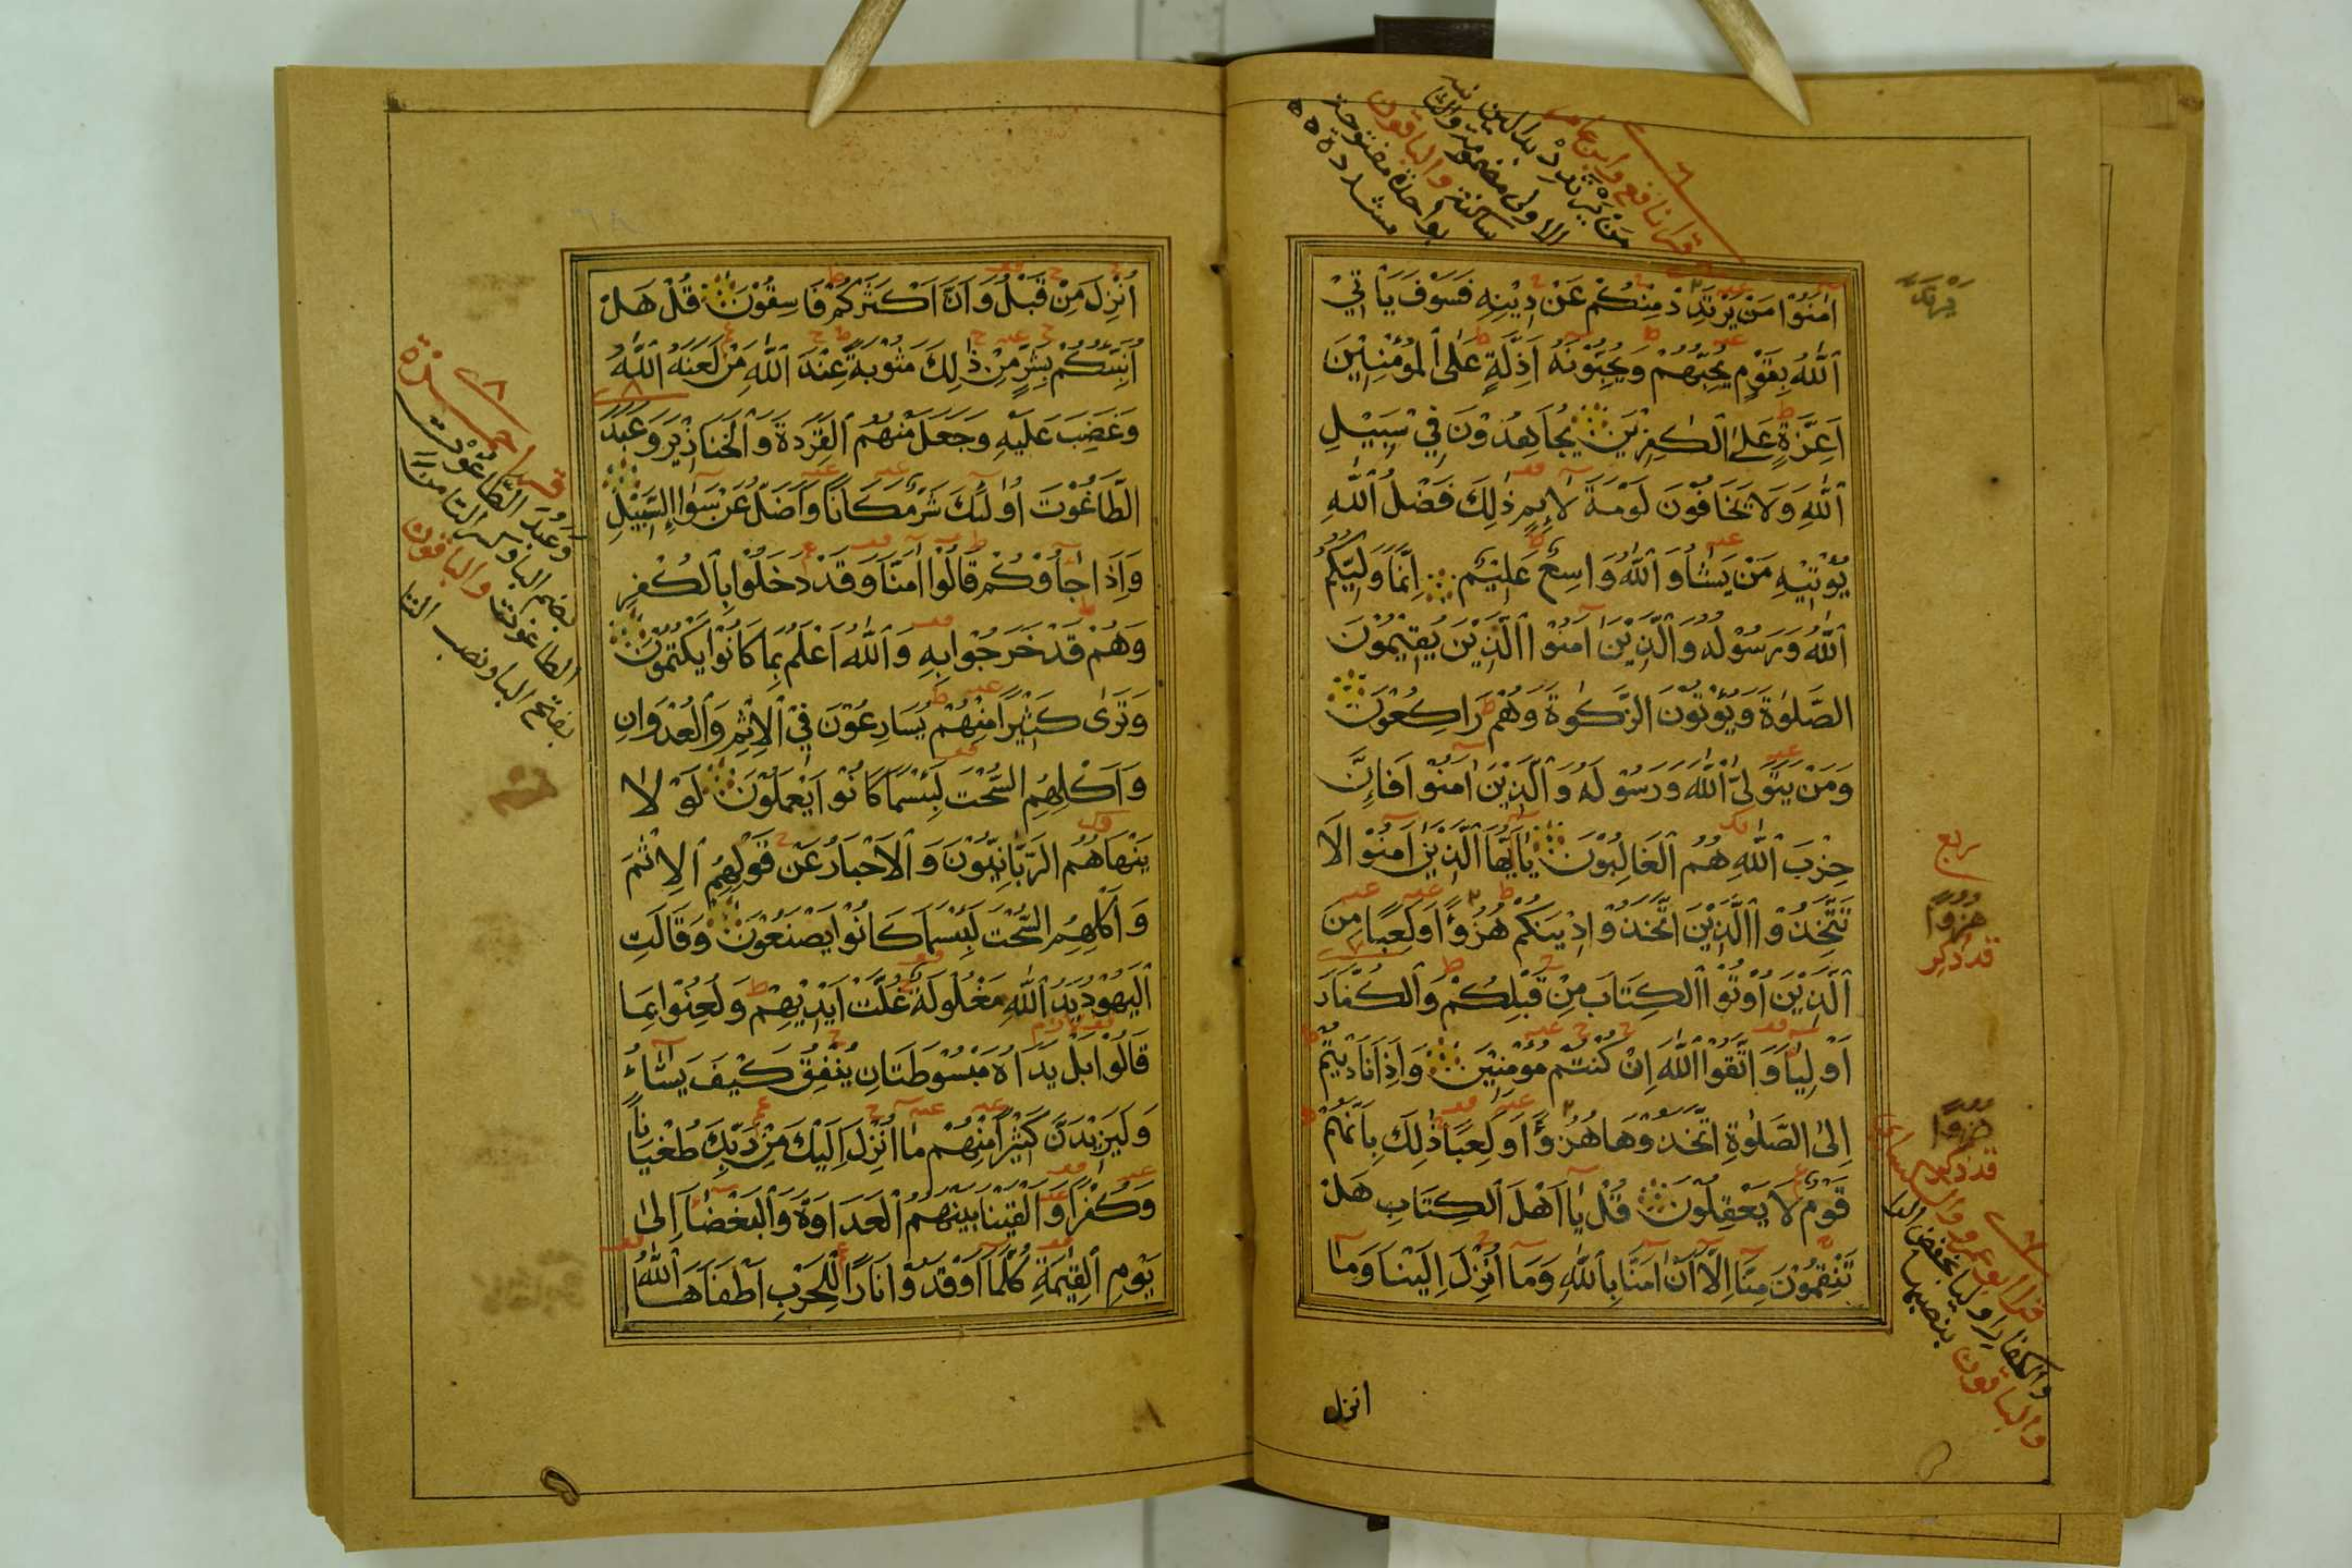 قرا نافع وابن عامر
من يرتدد بدالين
الاولى مضمومة والثا
ساكنة والباقون
بواحدة مفتوحة
مشددة
اٰمَنُوْا مَنْ يَرْتَدِدْ مِنْكُمْ عَنْ دِيْنِهٖ فَسَوْفَ يَاْتِيْ
اللّٰهُ بِقَوْمٍ يُحِبُّهُمْ وَيُحِبُّوْنَهٗ اَذِلَّةٍ عَلَى الْمُؤْمِنِيْنَ
اَعِزَّةٍ عَلَى الْكٰفِرِيْنَ يُجَاهِدُوْنَ فِيْ سَبِيْلِ
اللّٰهِ وَلَا يَخَافُوْنَ لَوْمَةَ لَائِمٍ ذٰلِكَ فَضْلُ اللّٰهِ
يُؤْتِيْهِ مَنْ يَشَاءُ وَاللّٰهُ وَاسِعٌ عَلِيْمٌ اِنَّمَا وَلِيُّكُمُ
اللّٰهُ وَرَسُوْلُهٗ وَالَّذِيْنَ اٰمَنُوا الَّذِيْنَ يُقِيْمُوْنَ
الصَّلٰوةَ وَيُؤْتُوْنَ الزَّكٰوةَ وَهُمْ رَاكِعُوْنَ
وَمَنْ يَتَوَلَّ اللّٰهَ وَرَسُوْلَهٗ وَالَّذِيْنَ اٰمَنُوْا فَاِنَّ
حِزْبَ اللّٰهِ هُمُ الْغَالِبُوْنَ يَا اَيُّهَا الَّذِيْنَ اٰمَنُوْا لَا
تَتَّخِذُوا الَّذِيْنَ اتَّخَذُوْا دِيْنَكُمْ هُزُؤًا وَلَعِبًا مِنَ
الَّذِيْنَ اُوْتُوا الْكِتَابَ مِنْ قَبْلِكُمْ وَالْكُفَّارَ
اَوْلِيَاءَ وَاتَّقُوا اللّٰهَ اِنْ كُنْتُمْ مُؤْمِنِيْنَ وَاِذَا نَادَيْتُمْ
اِلَى الصَّلٰوةِ اتَّخَذُوْهَا هُزُؤًا وَلَعِبًا ذٰلِكَ بِاَنَّهُمْ
قَوْمٌ لَا يَعْقِلُوْنَ قُلْ يَا اَهْلَ الْكِتَابِ هَلْ
تَنْقِمُوْنَ مِنَّا اِلَّا اَنْ اٰمَنَّا بِاللّٰهِ وَمَا اُنْزِلَ اِلَيْنَا وَمَا
ربع
هزوا
قد ذكر
هزوا
قد ذكر
قرا ابو عمرو والكسائي
والكفار اوليا بخفض الرا
والباقون بنصبها
انزل
اُنْزِلَ مِنْ قَبْلُ وَاَنَّ اَكْثَرَكُمْ فَاسِقُوْنَ قُلْ هَلْ
اُنَبِّئُكُمْ بِشَرٍّ مِنْ ذٰلِكَ مَثُوْبَةً عِنْدَ اللّٰهِ مَنْ لَعَنَهُ اللّٰهُ
وَغَضِبَ عَلَيْهِ وَجَعَلَ مِنْهُمُ الْقِرَدَةَ وَالْخَنَازِيْرَ وَعَبَدَ
الطَّاغُوْتَ اُولٰئِكَ شَرٌّ مَكَانًا وَاَضَلُّ عَنْ سَوَاءِ السَّبِيْلِ
وَاِذَا جَاؤُكُمْ قَالُوْا اٰمَنَّا وَقَدْ دَخَلُوْا بِالْكُفْرِ
وَهُمْ قَدْ خَرَجُوْا بِهٖ وَاللّٰهُ اَعْلَمُ بِمَا كَانُوْا يَكْتُمُوْنَ
وَتَرٰى كَثِيْرًا مِنْهُمْ يُسَارِعُوْنَ فِي الْاِثْمِ وَالْعُدْوَانِ
وَاَكْلِهِمُ السُّحْتَ لَبِئْسَمَا كَانُوْا يَعْمَلُوْنَ لَوْ لَا
يَنْهَاهُمُ الرَّبَّانِيُّوْنَ وَالْاَحْبَارُ عَنْ قَوْلِهِمُ الْاِثْمَ
وَاَكْلِهِمُ السُّحْتَ لَبِئْسَمَا كَانُوْا يَصْنَعُوْنَ وَقَالَتِ
الْيَهُوْدُ يَدُ اللّٰهِ مَغْلُوْلَةٌ غُلَّتْ اَيْدِيْهِمْ وَلُعِنُوْا بِمَا
قَالُوْا بَلْ يَدَاهُ مَبْسُوْطَتَانِ يُنْفِقُ كَيْفَ يَشَاءُ
وَلَيَزِيْدَنَّ كَثِيْرًا مِنْهُمْ مَا اُنْزِلَ اِلَيْكَ مِنْ رَبِّكَ طُغْيَانًا
وَكُفْرًا وَاَلْقَيْنَا بَيْنَهُمُ الْعَدَاوَةَ وَالْبَغْضَاءَ اِلٰى
يَوْمِ الْقِيٰمَةِ كُلَّمَا اَوْقَدُوْا نَارًا لِلْحَرْبِ اَطْفَاَهَا اللّٰهُ
قرا حمزة
وعبد الطاغوت
بضم الباوكسر التا من
الطاغوت والباقون
بفتح الباونصب التا